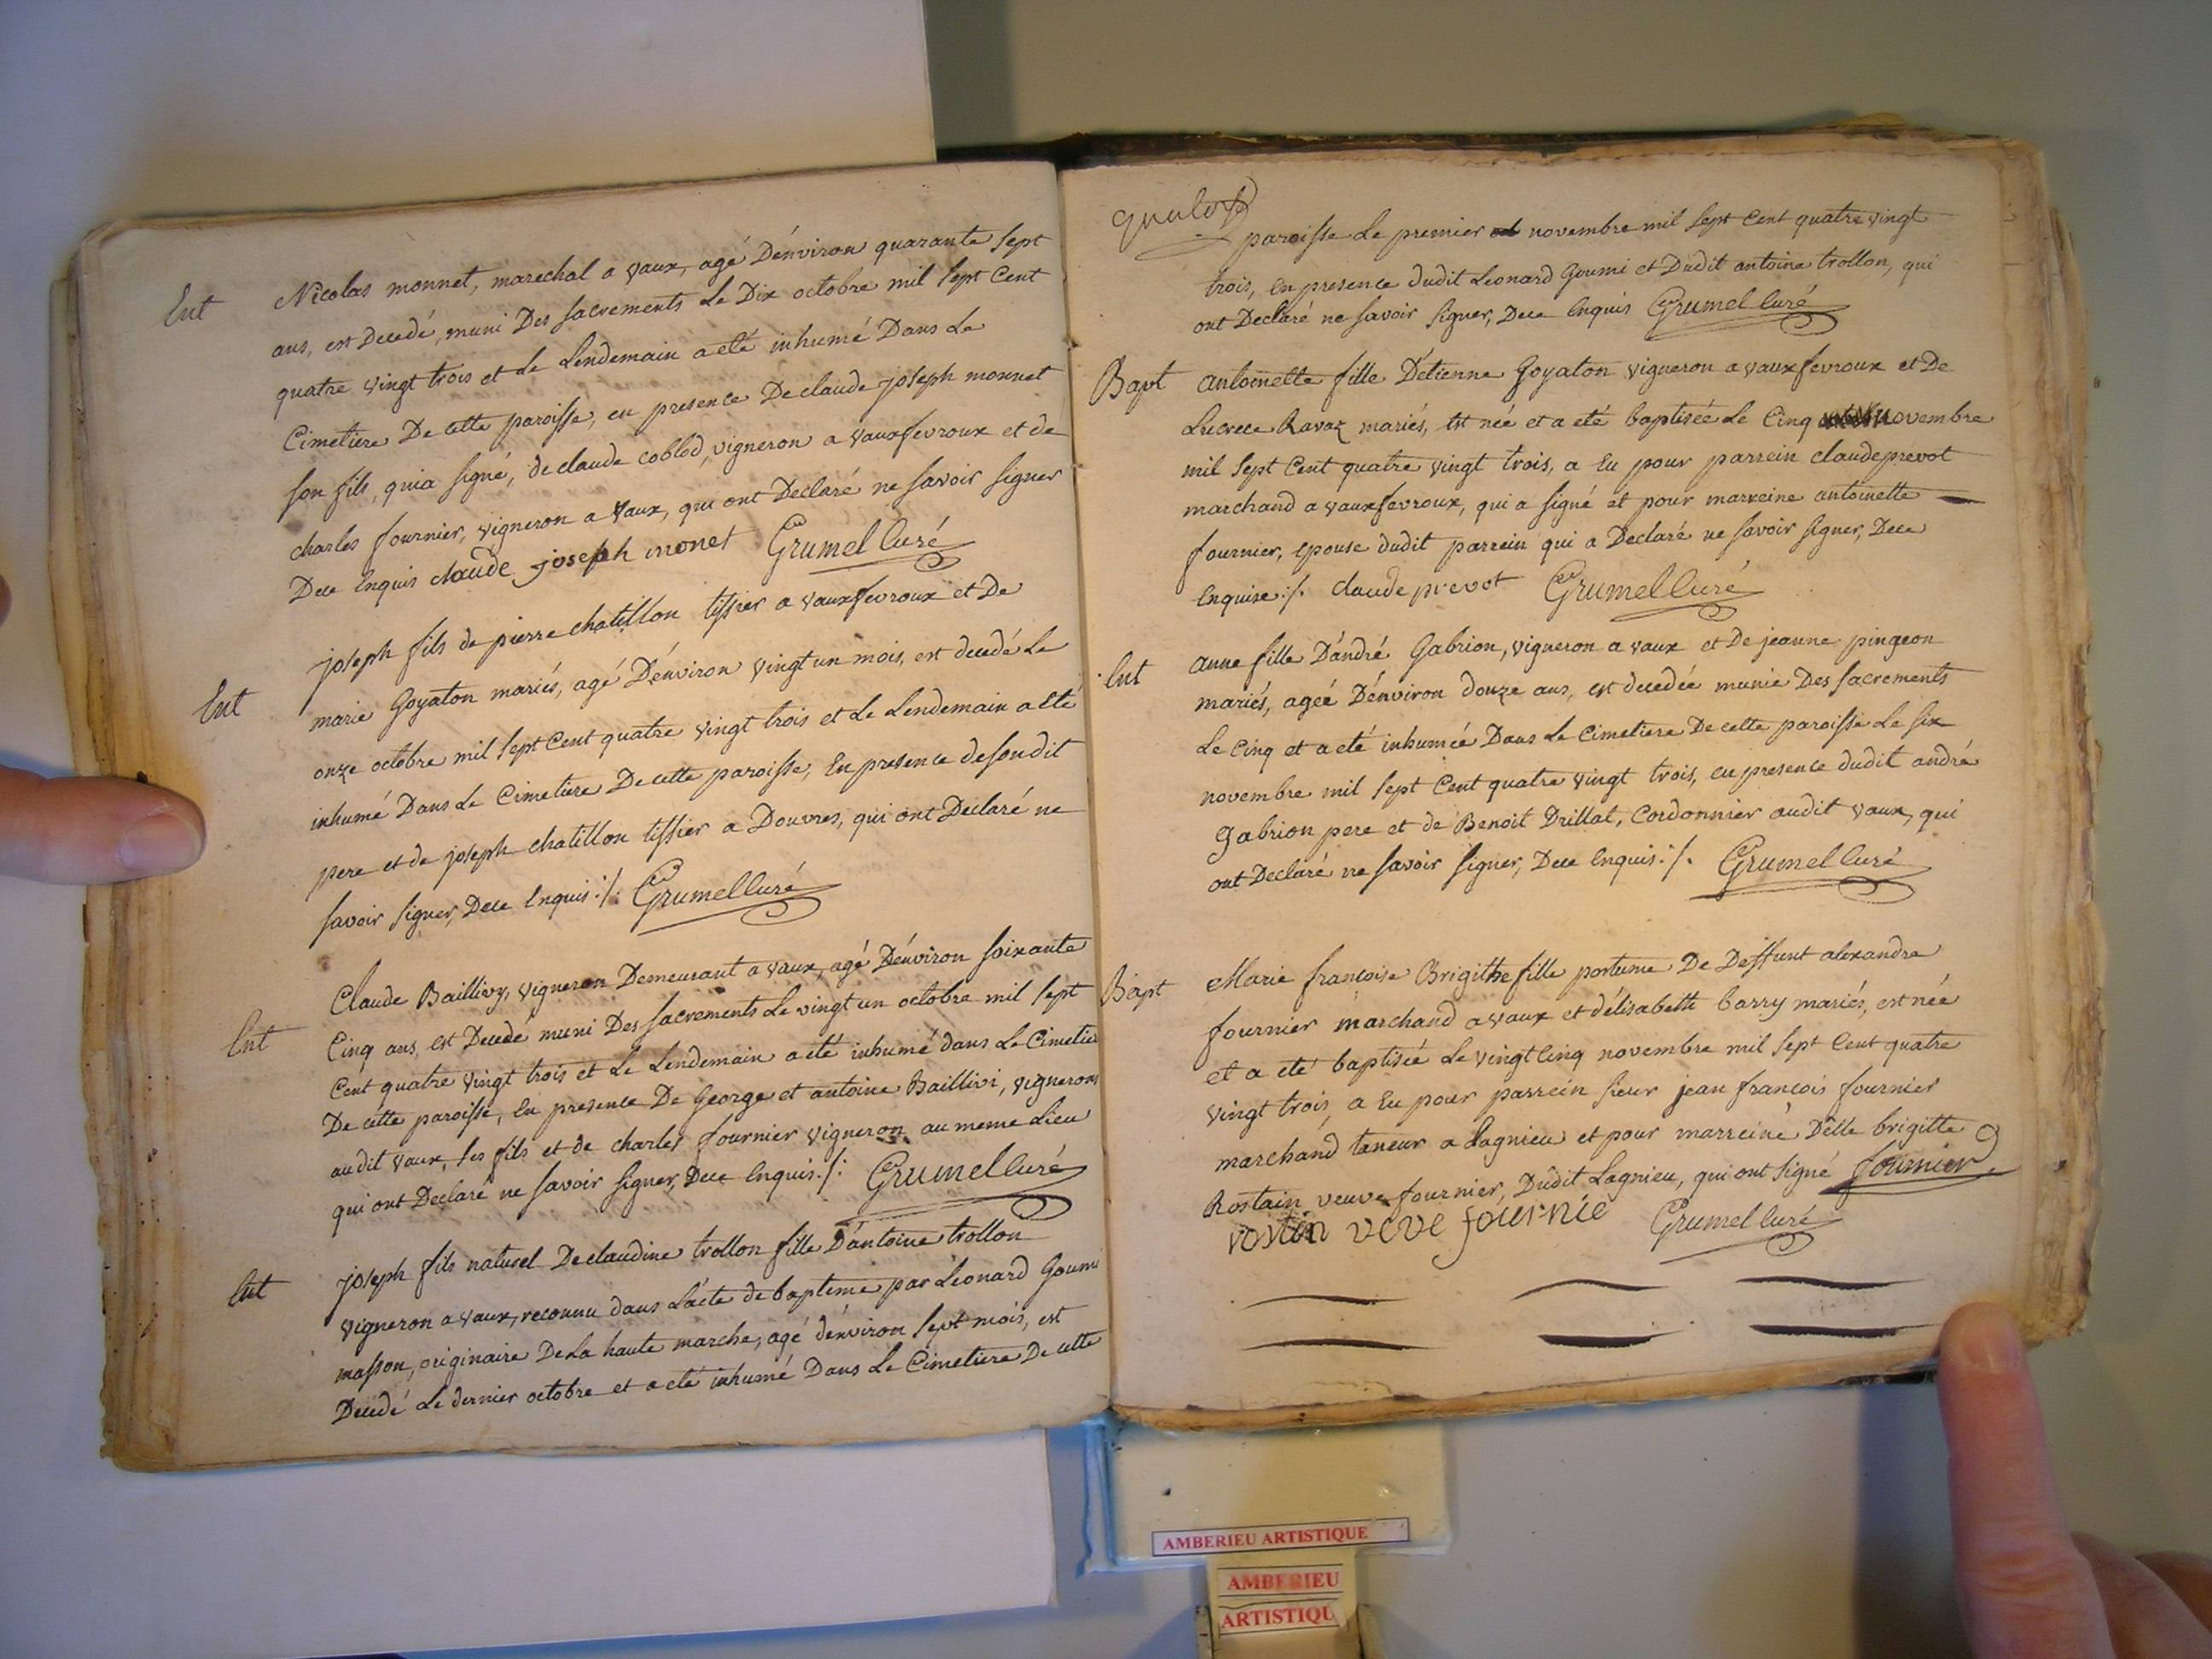 Ent Nicolas monnet, marechal a vaux, agé D'environ quarante sept
ans, est Decedé, muni Des sacrements Le Dix octobre mil sept Cent
quatre vingt trois et Le Lendemain a eté inhumé Dans Le
Cimetiere De cette paroisse, en presence De claude joseph monnet
son fils, qui a signé, de claude coblod, vigneron a vauxfevroux et de
charles fournier, vigneron a Vaux, qui ont Declaré ne savoir signer
Dece Enquis claude joseph monet Grumel Curé
Ent joseph fils de pierre chatillon tissier a vauxfevroux et De
marie Goyaton mariés, agé D'environ vingt un mois, est decedé Le
onze octobre mil sept Cent quatre vingt trois et Le Lendemain a eté
inhumé Dans Le Cimetiere De cette paroisse, En presence de sondit
pere et de joseph chatillon tissier a Douvres, qui ont Declaré ne
savoir signer, Dece Enquis ./. Grumel Curé
Ent Claude Baillivy, vigneron Demeurant a vaux, agé D'environ soixante
Cinq ans, est Decedé muni Des sacrements Le vingt un octobre mil sept
Cent quatre vingt trois et Le Lendemain a eté inhumé dans Le Cimetier
De cette paroisse, En presence De George et antoine Baillivi, vignerons
audit vaux, ses fils et de charles fournier vigneron au meme Lieu
qui ont Declaré ne savoir signer, Dece Enquis ./: Grumel Curé
Ent joseph fils naturel De claudine trollon fille D'antoine trollon
vigneron a vaux, reconnu dans L'acte de baptême par Léonard Goumi
masson, originaire De La haute marche, agé d'environ sept mois, est
Decedé Le dernier octobre et a eté inhumé Dans Le Cimetiere De cette
paroisse Le premier novembre mil sept Cent quatre vingt
trois, En presence dudit Leonard Goumi et Dudit antoine trollon, qui
ont Declaré ne savoir signer, Dece Enquis Grumel Curé
Bapt antoinette fille D'etienne Goyaton vigneron a vauxfevroux et De
Lucrece Ravaz mariés, est née et a eté baptisée Le Cinq novembre
mil sept Cent quatre vingt trois, a Eu pour parrein claude prevot
marchand a vauxfevroux, qui a signé et pour marreine antoinette
fournier, epouse dudit parrein qui a Declaré ne savoir signer, Dece
Enquise ./. claude prevot Grumel Curé
Ent anne fille D'andré Gabrion, vigneron a vaux et De jeanne pingeon
mariés, agée D'environ douze ans, est decedée munie Des sacrements
Le cinq et a eté inhumée Dans Le Cimetiere De cette paroisse Le six
novembre mil sept Cent quatre vingt trois, en presence dudit andré
gabrion pere et de Benoit Drillat, Cordonnier audit vaux, qui
ont Declaré ne savoir signer, Dece Enquis ./. Grumel Curé
Bapt Marie françoise Brigithe fille postume De Deffunt alexandre
fournier marchand a vaux et d'élisabeth barry mariés, est née
et a eté baptisée Le vingt Cinq novembre mil sept Cent quatre
vingt trois, a Eu pour parrein sieur jean francois fournier
marchand taneur a Lagnieu et pour marreine Delle brigitte
Rostain veuve fournier, Dudit Lagnieu, qui ont signé fournier
rostin veve fournie Grumel Curé
AMBERIEU ARTISTIQUE
AMBERIEU
ARTISTIQU